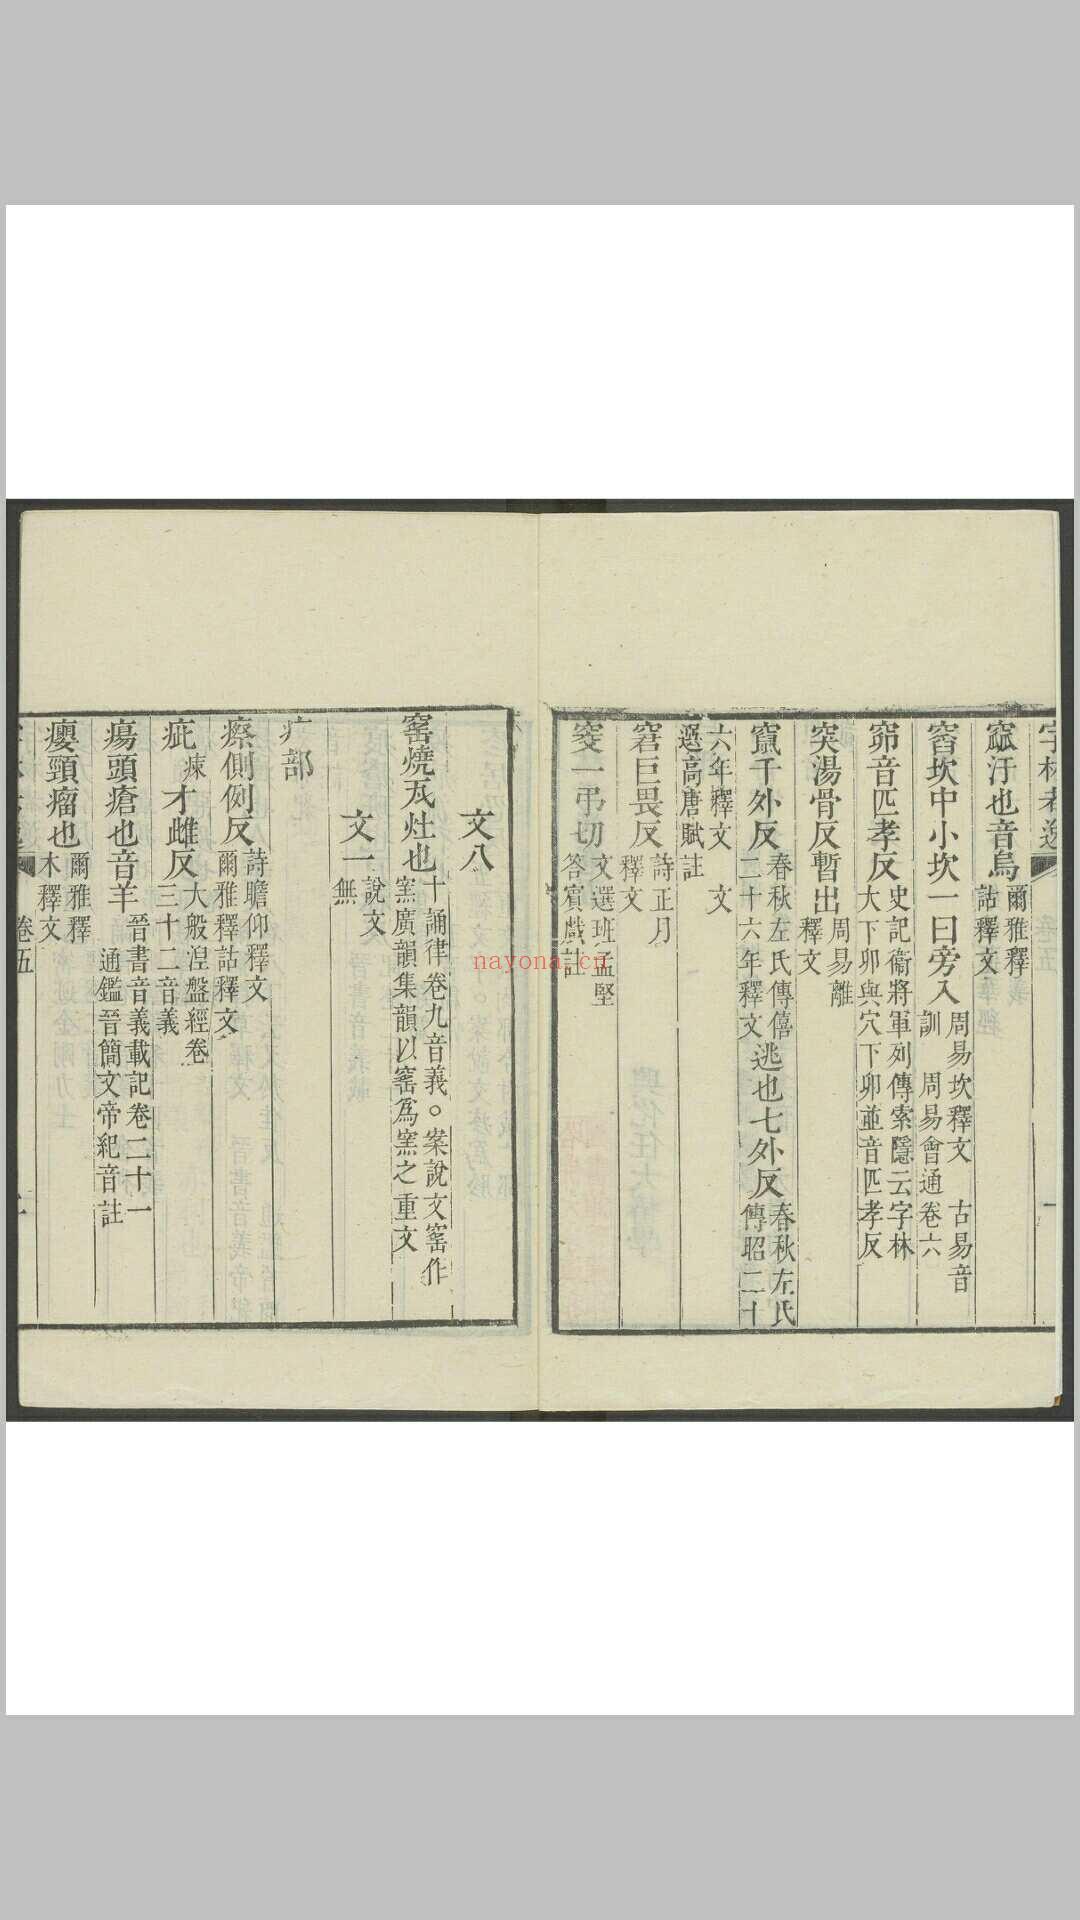 字林考逸
窳汙也音烏爾雅釋詁釋文
窞坎中小坎一曰旁入周易坎釋文 古易音訓 周易會通卷六
窌音匹孝反史記衞將軍列傳索隱云字林大下卯與穴下卯並音匹孝反
突湯骨反暫出周易離釋文
竄千外反春秋左氏傳僖二十六年釋文逃也七外反春秋左氏傳昭二十
六年釋文 文選高唐賦註
窘巨畏反詩正月釋文
窔一弔切文選班孟堅答賓戲註
文八
窰燒瓦灶也十誦律卷九音義○案說文窰作窯廣韻集韻以窰爲窯之重文
文一說文無
疒部
瘵側例反詩瞻仰釋文爾雅釋詁釋文
疵㾊才雌反大般涅盤經卷三十二音義
瘍頭瘡也音羊晉書音義載記卷二十一通鑑晉簡文帝紀音註
癭頸瘤也爾雅釋木釋文
卷五
nayona.cn